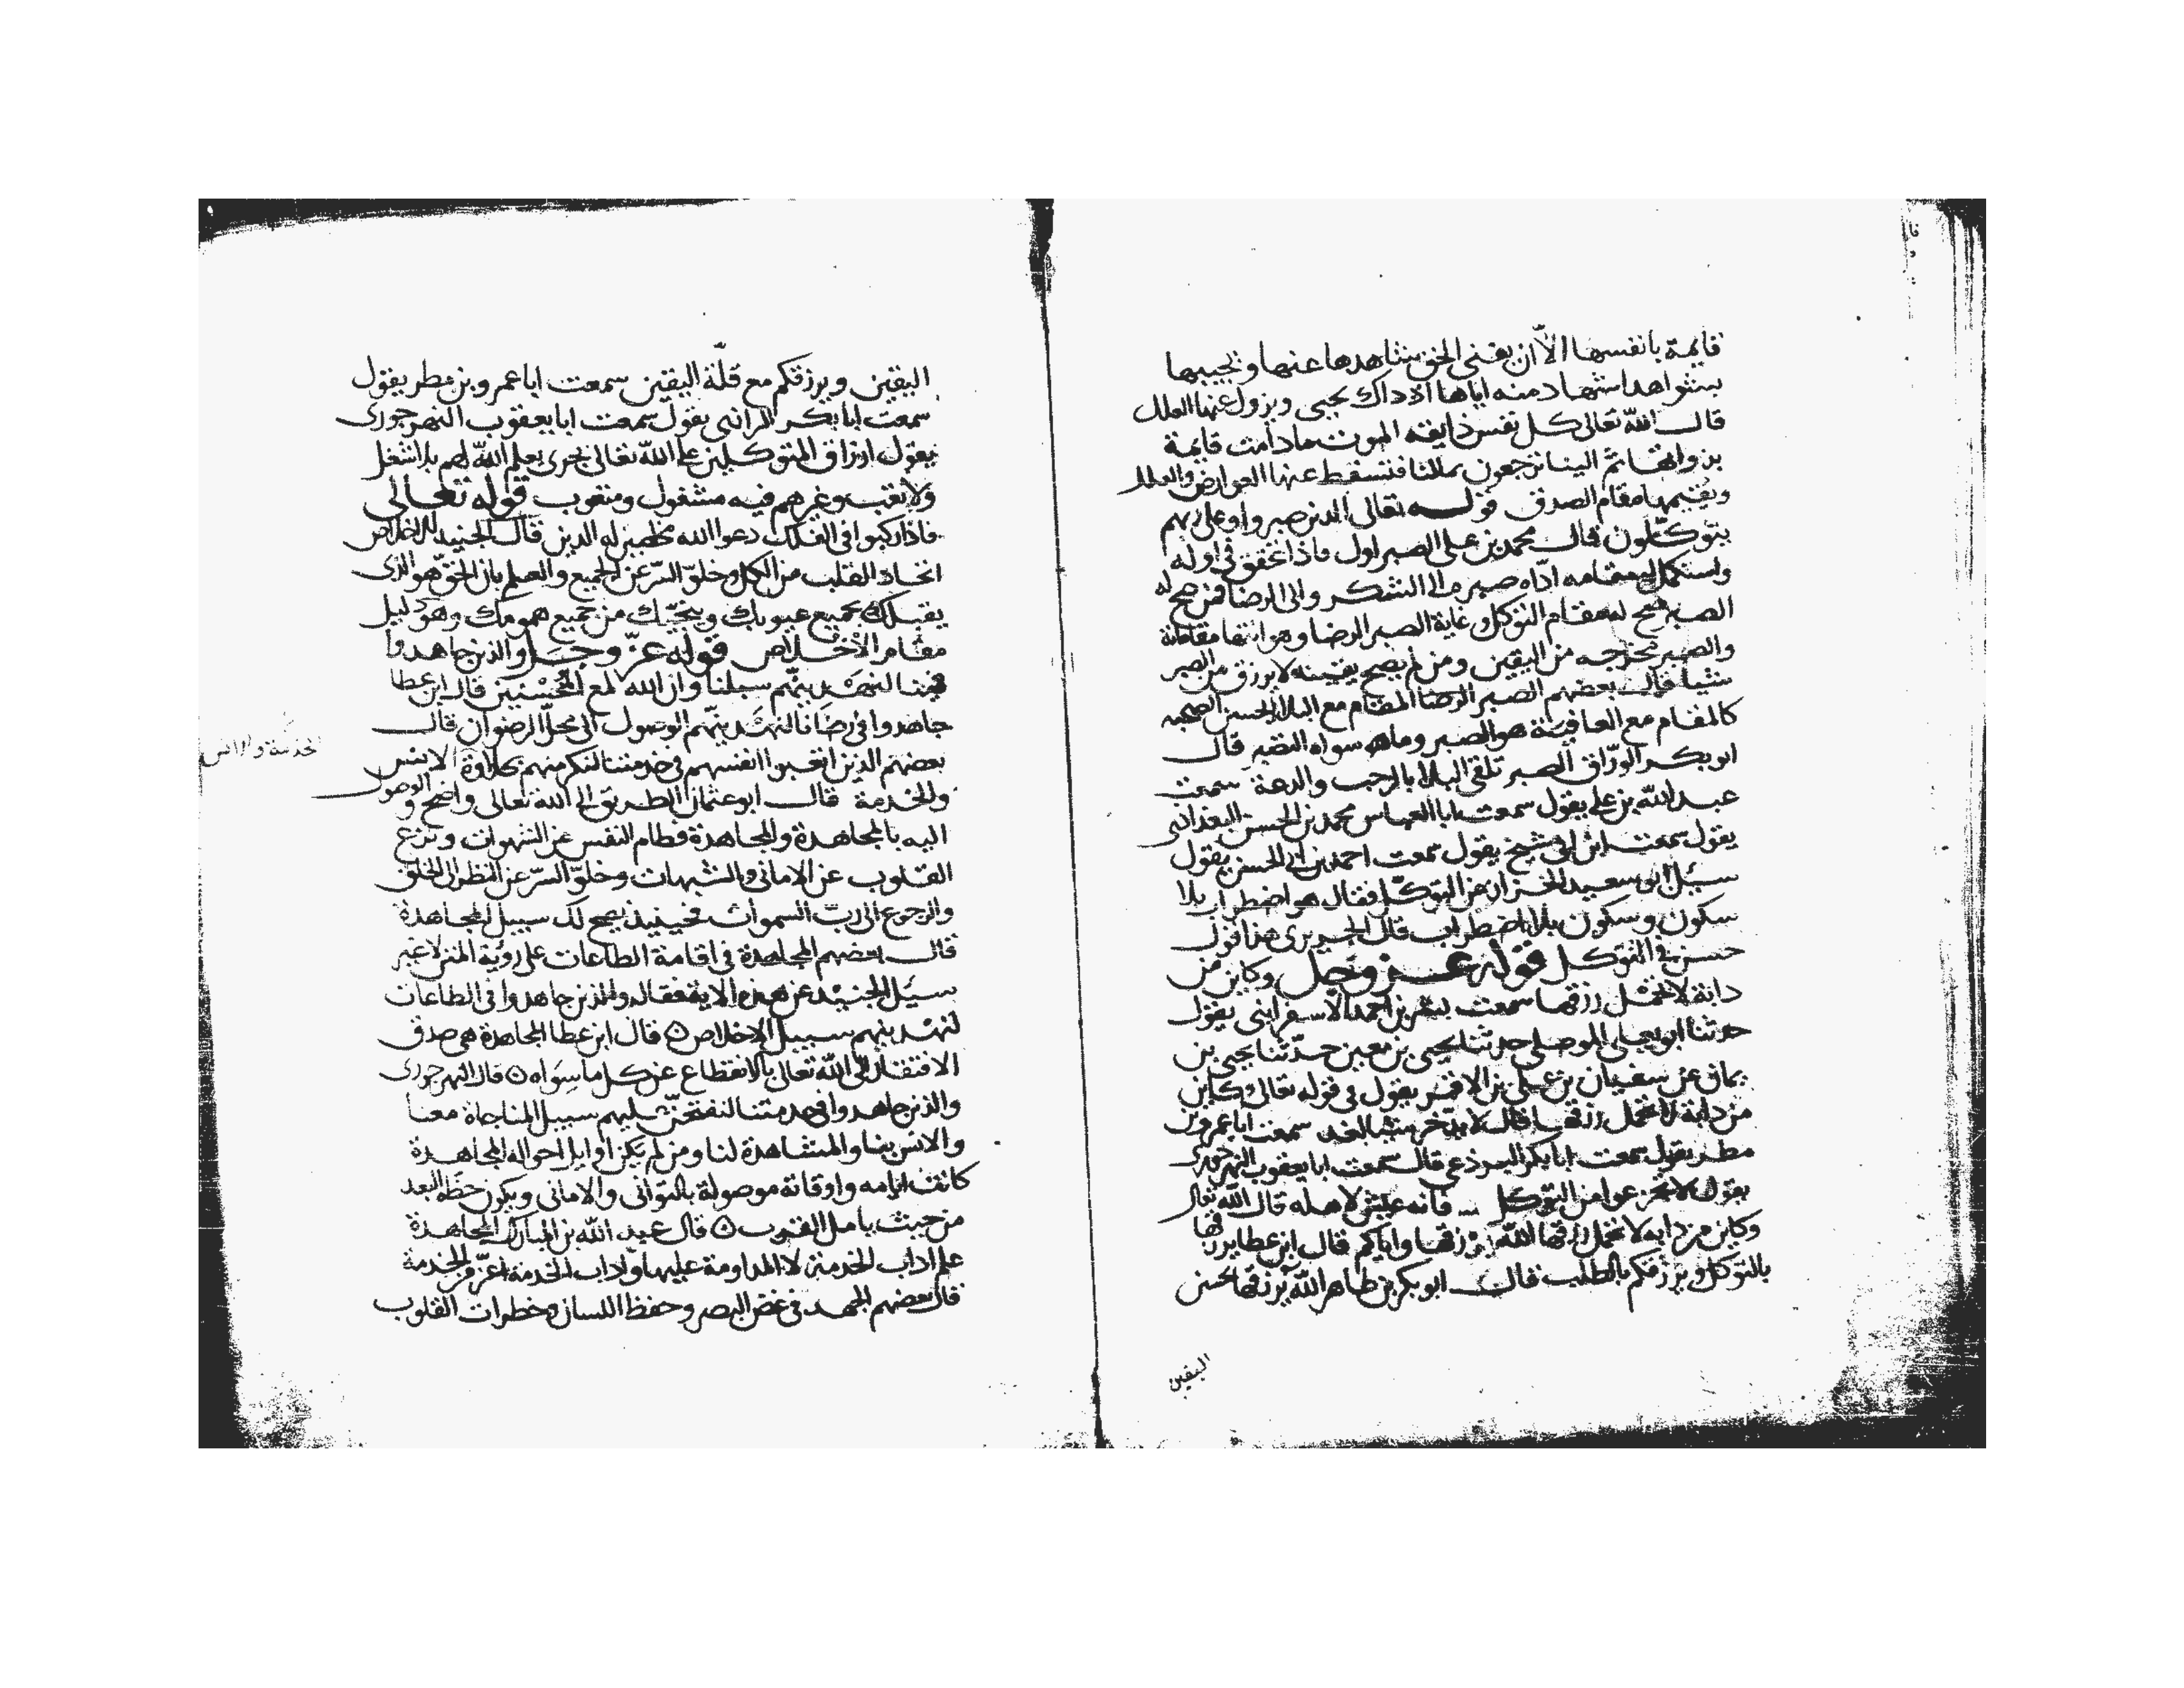 قايمة بانفسها الا ان يفنى الحق شاهدها عنها ويحييها
بشواهد اشهاد منه اياها اذ ذاك يحيى ويزول عنها العلل
قال الله تعالى كل نفس ذايقة الموت مادامت قايمة
بذواتها ثم الينا ترجعون فتسقط عنها العوارض والعلل
ويقيمها مقام الصدق قوله تعالى الذين صبروا وعلى ربهم
يتوكلون قال محمد بن على الصبر اول فاذا تحقق فى اوله
واستكمل مقامه اداه صبره الى الشكر والى الرضا فمن صح له
الصبر صح له مقام التوكل وغاية الصبر الرضا وهو انتها مقاماته
والصبر مخرجه من اليقين ومن لم يصح يقينه لا يرزق من الصبر
شيا قال بعضهم الصبر الرضا المقام مع البلا بحسن الصحبه
كالمقام مع العافية هو الصبر وما هو سواه التصبر قال
ابو بكر الوراق الصبر تلقى البلا بالرحب والدعة سمعت
عبد الله بن على يقول سمعت ابا العباس محمد بن الحسن البغدادى
يقول سمعت ابن ابى شيخ يقول سمعت احمد بن ابى الحسن يقول
سيل ابو سعيد الخراز عن التوكل فقال هو اضطراب بلا
سكون وسكون بلا اضطراب قال الجريرى هذا قول
حسن فى التوكل قوله عز وجل وكاين من
دابة لا تحمل رزقها سمعت بشر بن احمد الاسفراينى يقول
حدثنا ابو يعلى الموصلى حدثنا يحيى بن معين حدثنا يحيى بن
يمان عن سفيان بن على بن الاقمر يقول فى قوله تعالى وكاين
من دابة لا تحمل رزقها قال لا تدخر شيا لغد سمعت ابا عمرو بن
مطر يقول سمعت ابا بكر البرذعى قال سمعت ابا يعقوب النهرجورى
يقول لا تجزعوا من التوكل فانه عيش لاهله قال الله تعالى
وكاين من دابه لا تحمل رزقها الله يرزقها واياكم قال ابن عطا يرزقها
بالتوكل ويرزقكم بالطلب قال ابو بكر بن طاهر الله يرزقها بحسن
اليقين
اليقين ويرزقكم مع قلة اليقين سمعت ابا عمرو بن مطر يقول
سمعت ابا بكر الرانى يقول سمعت ابا يعقوب النهرجورى
يقول ارزاق المتوكلين على الله تعالى تجرى بعلم الله لهم بلا شغل
ولا تعب وغيرهم فيه مشغول ومتعوب قوله تعالى
فاذا ركبوا فى الفلك دعوا الله مخلصين له الدين قال الجنيد الاخلاص
اتخاذ القلب من الكل وخلو السر عن الجميع والعلم بان الحق هو الذى
يقبلك بجميع عيوبك وينجيك من جميع همومك وهو دليل
مقام الاخلاص قوله عز وجل والذين جاهدوا
فينا لنهدينهم سبلنا وان الله لمع المحسنين قال ابن عطا
جاهدوا فى رضانا لنهدينهم الوصول الى محل الرضوان قال
بعضهم الذين اتعبوا انفسهم فى خدمتنا لنكرمنهم بحلاوة الانس
والخدمة قال ابو عثمان الطريق الى الله تعالى واضح والوصول
اليه بالمجاهدة والمجاهدة فطام النفس عن الشهوات ونزع
القلوب عن الامانى والشبهات وخلو السر عن النظر الى الخلق
والرجوع الى رب السموات فحينيذ يصح لك سبيل المجاهدة
قال بعضهم المجاهدة فى اقامة الطاعات على روية المنن لا غير
سيل الجنيد عن هذه الاية فقال والذين جاهدوا فى الطاعات
لنهدينهم سبيل الاخلاص قال ابن عطا المجاهدة هى صدق
الافتقار الى الله تعالى بالانقطاع عن كل ما سواه قال النهرجورى
والذين جاهدوا فى خدمتنا لنفتحن عليهم سبيل المناجاة معنا
والانس بنا والمشاهدة لنا ومن لم يكن اوايل احواله المجاهدة
كانت ايامه واوقاته موصولة بالتوانى والامانى ويكون حظه البعد
من حيث يامل القرب قال عبد الله بن المبارك المجاهدة
علم اداب الخدمة لا المداومة عليها واداب الخدمة اعز من الخدمة
قال بعضهم الجهد فى غض البصر وحفظ اللسان وخطرات القلوب